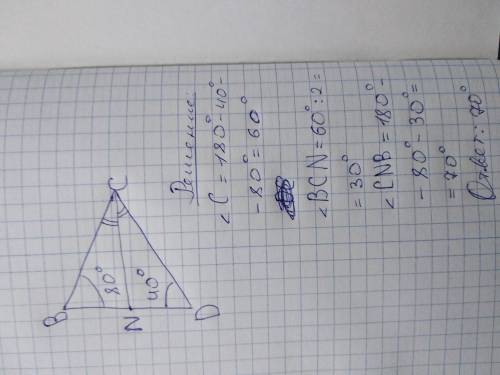 B
80°
N
40°
D
C
Решение:
∠C = 180° - 40° -
- 80° = 60°
∠BCN = 60° : 2 =
= 30°
∠CNB = 180° -
- 80° - 30° =
= 70°
Ответ: 70°